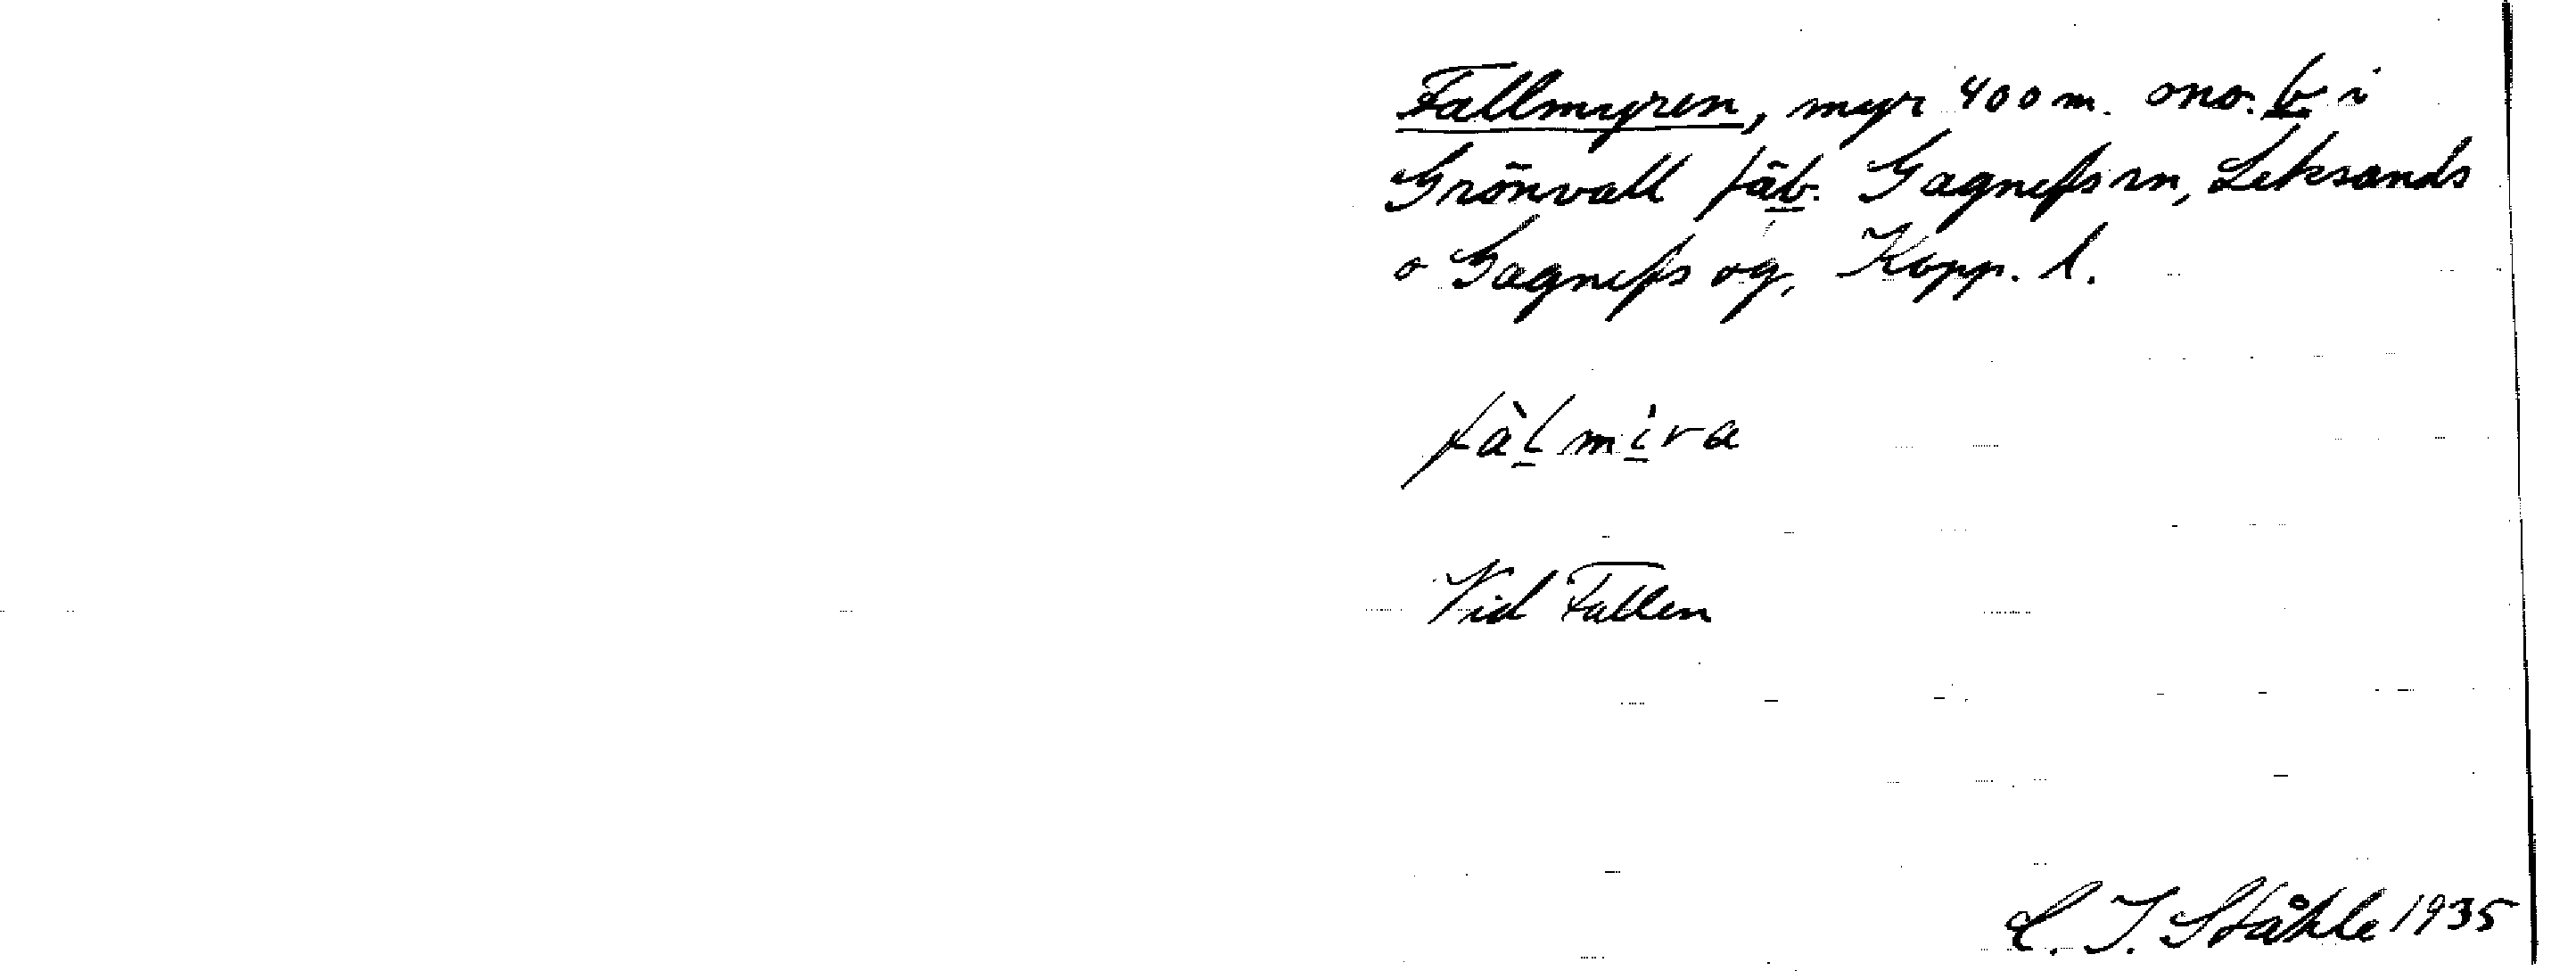 Fallmyren, myr 400 m. ono. b i
Grönvall fäb. Gagnefs sn, Leksands
o Gagnefs og, Kopp. l.
fàlmi̇ra
Vid Fallen
C. I. Ståhle 1935